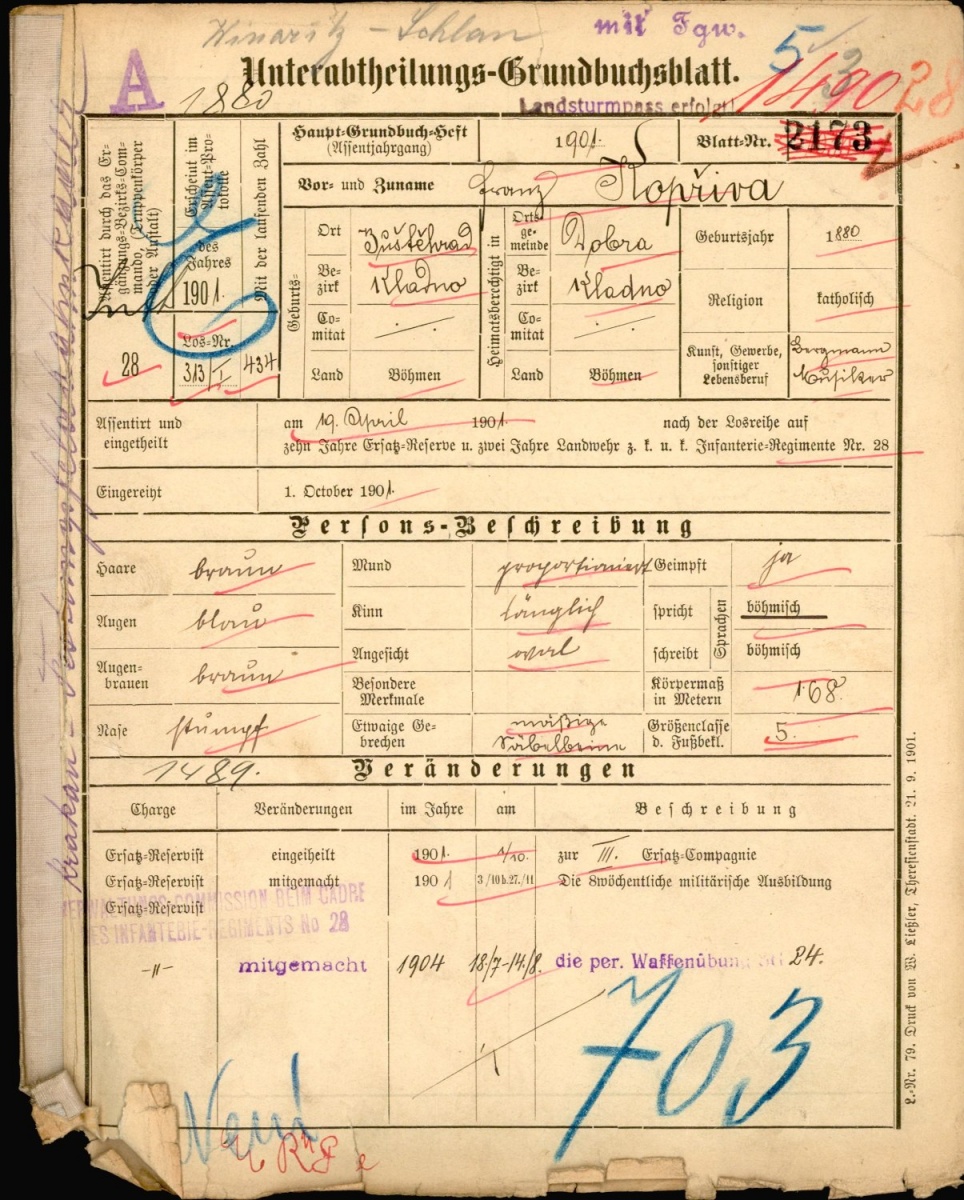 Winařitz - Schlan
mit Fgw.
A
Unterabtheilungs-Grundbuchsblatt.
5/3
1490
28
1880
Landsturmpass erfolgt!
Assentirt durch das Ergänzungs-Bezirks-Commando, (Truppenkörper oder Anstalt)
28
Erscheint im Assent-Protokolle
des Jahres
1901.
Los-Nr.
313/I
Mit der laufenden Zahl
434
Haupt-Grundbuch-Heft
(Assentjahrgang)
1901.
Blatt-Nr. 2173
Vor- und Zuname Franz Kopřiva
Geburts-
Ort Buštěhrad
Bezirk Kladno
Comitat . / .
Land Böhmen
Heimatsberechtigt in
Ortsgemeinde Dobra
Bezirk Kladno
Comitat . / .
Land Böhmen
Geburtsjahr 1880
Religion katholisch
Kunst, Gewerbe, sonstiger Lebensberuf Bergmann Musiker
Assentirt und eingetheilt
am 19. April 1901. nach der Losreihe auf
zehn Jahre Ersatz-Reserve u. zwei Jahre Landwehr z. k. u. k. Infanterie-Regimente Nr. 28
Eingereiht 1. October 1901.
Persons-Beschreibung
Haare braun
Augen blau
Augenbrauen braun
Nase stumpf
Mund proportioniert
Kinn länglich
Angesicht oval
Besondere Merkmale
Etwaige Gebrechen mäßige Säbelbeine
Geimpft ja
Sprachen
spricht böhmisch
schreibt böhmisch
Körpermaß in Metern 1·68.
Größenclasse d. Fußbekl. 5.
1489.
Veränderungen
Charge Veränderungen im Jahre am Beschreibung
Ersatz-Reservist eingetheilt 1901. 1/10. zur III. Ersatz-Compagnie
Ersatz-Reservist mitgemacht 1901 3/10 b. 27./11 Die 8wöchentliche militärische Ausbildung
Ersatz-Reservist
VERWALTUNGS-COMMISSION BEIM CADRE
DES INFANTERIE-REGIMENTS No 28
-"- mitgemacht 1904 18/7-14/8. die per. Waffenübung 24.
703
Není
L.-Nr. 79. Druck von W. Ließler, Theresienstadt. 21. 9. 1901.